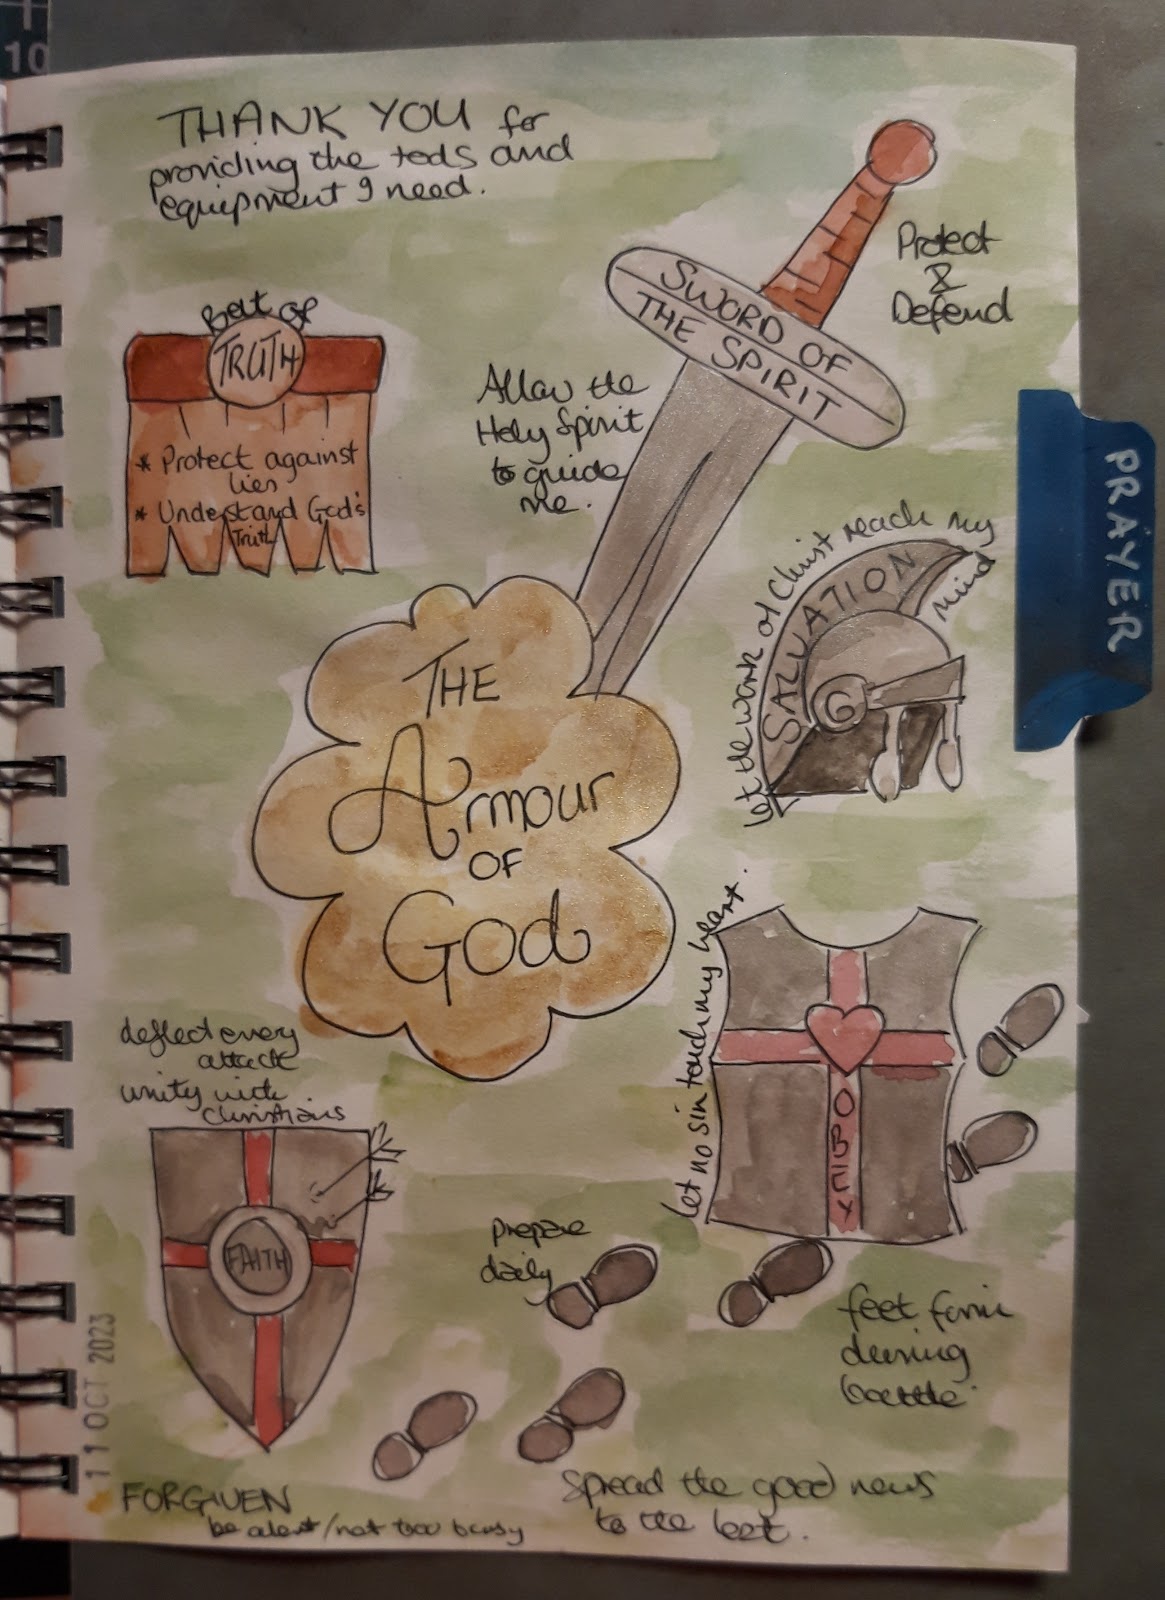 10
THANK YOU for
providing the tools and
equipment I need.
Protect
&
Defend
SWORD OF
THE SPIRIT
Belt of
TRUTH
* Protect against
lies
* Understand God's
Truth
Allow the
Holy Spirit
to guide
me.
PRAYER
let the work of Christ reach my
mind
SALVATION
THE
Armour
OF
God
let no sin touch my heart.
deflect every
attack
unity with
Christians
FAITH
prepare
daily
feet firm
during
battle.
11 OCT 2023
FORGIVEN
be alert/not too busy
Spread the good news
to the lost.